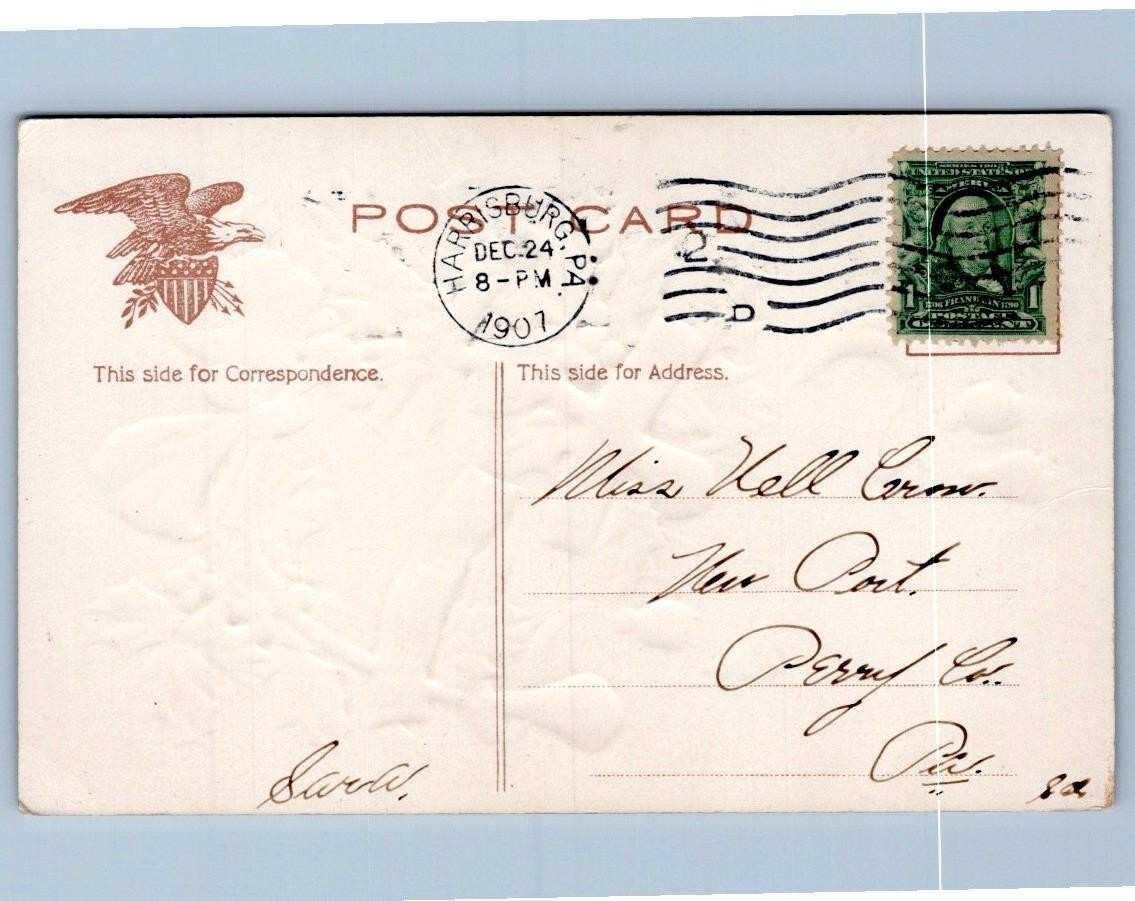 POST CARD
HARRISBURG, PA.
DEC. 24
8-PM
1907
2
D
SERIES 1902
UNITED STATES
1 1706 FRANKLIN 1790 1
POSTAGE
This side for Correspondence.
This side for Address.
Miss Nell Crow.
New Port.
Perry Co.
Pa.
Sara.